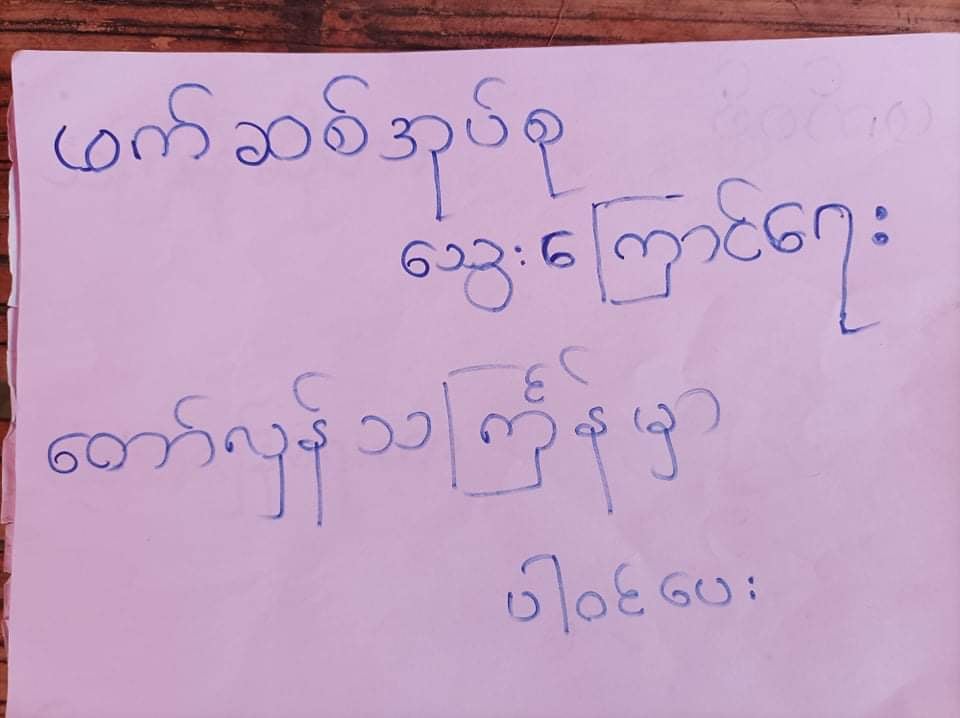 ဖက်ဆစ်အုပ်စု
သွေးကြောင်ရေး
တော်လှန်သင်္ကြန်မှာ
ပါဝင်ပေး